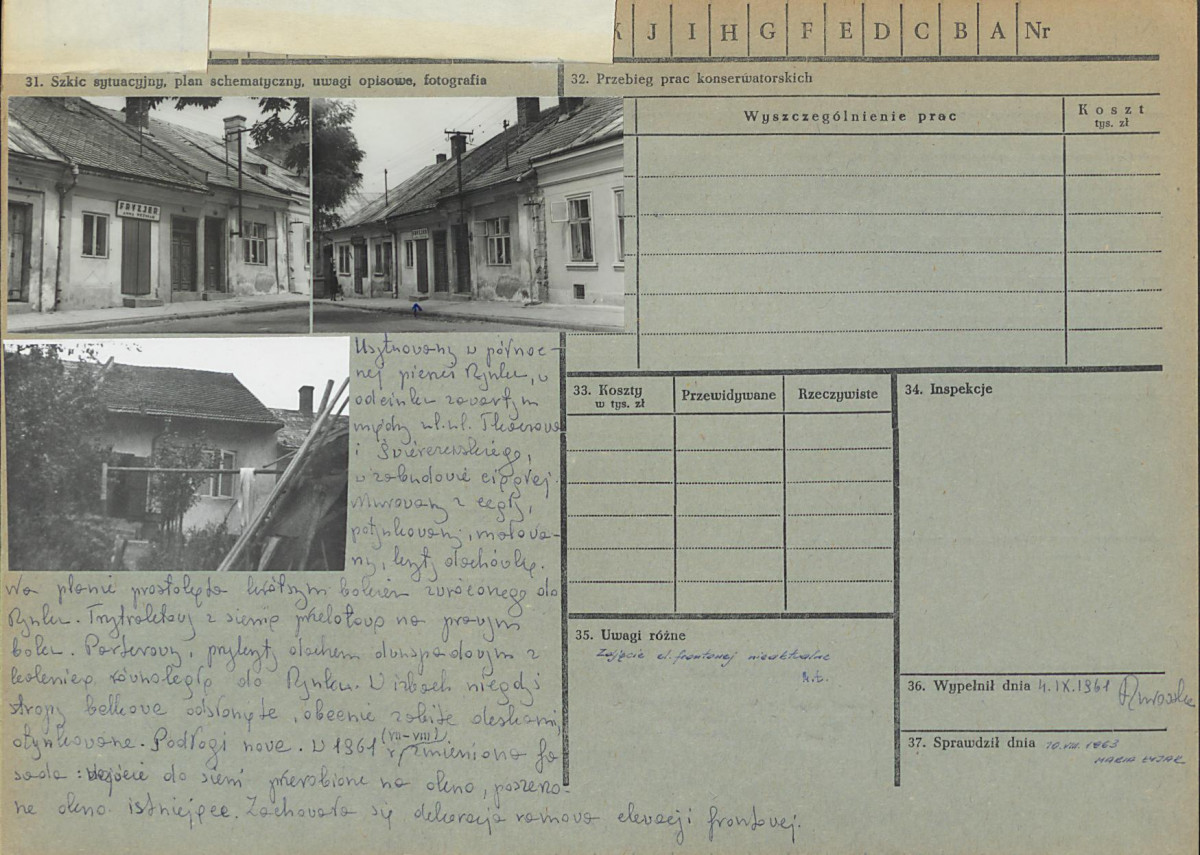 K J I H G F E D C B A Nr
31. Szkic sytuacyjny, plan schematyczny, uwagi opisowe, fotografia
FRYZJER
Usytuowany w północ-
nej pierzei Rynku, w
odcinku zawartym
między ul.ul. Tkaczowa
i Świerczewskiego,
w zabudowie ciągłej.
Murowany z cegły,
potynkowany, malowa-
ny, kryty dachówką.
Na planie prostokąta krótszym bokiem zwróconego do
Rynku. Trzytraktowy z sienią przelotową na prawym
boku. Parterowy, przykryty dachem dwuspadowym z
kalenicą równoległą do Rynku. W izbach niegdyś
stropy belkowe odsłonięte, obecnie zabite deskami,
otynkowane. Podłogi nowe. W 1961 (VII-VIII) r. zmieniono fa
sadę: wejście do sieni przerobione na okno, poszerzo-
ne okno istniejące. Zachowała się dekoracja ramowa elewacji frontowej.
32. Przebieg prac konserwatorskich
Wyszczególnienie prac
Koszt
tys. zł
33. Koszty
w tys. zł
Przewidywane
Rzeczywiste
34. Inspekcje
35. Uwagi różne
Zdjęcie el. frontowej nieaktualne
36. Wypełnił dnia 4.IX.1961
37. Sprawdził dnia 10.VIII.1963